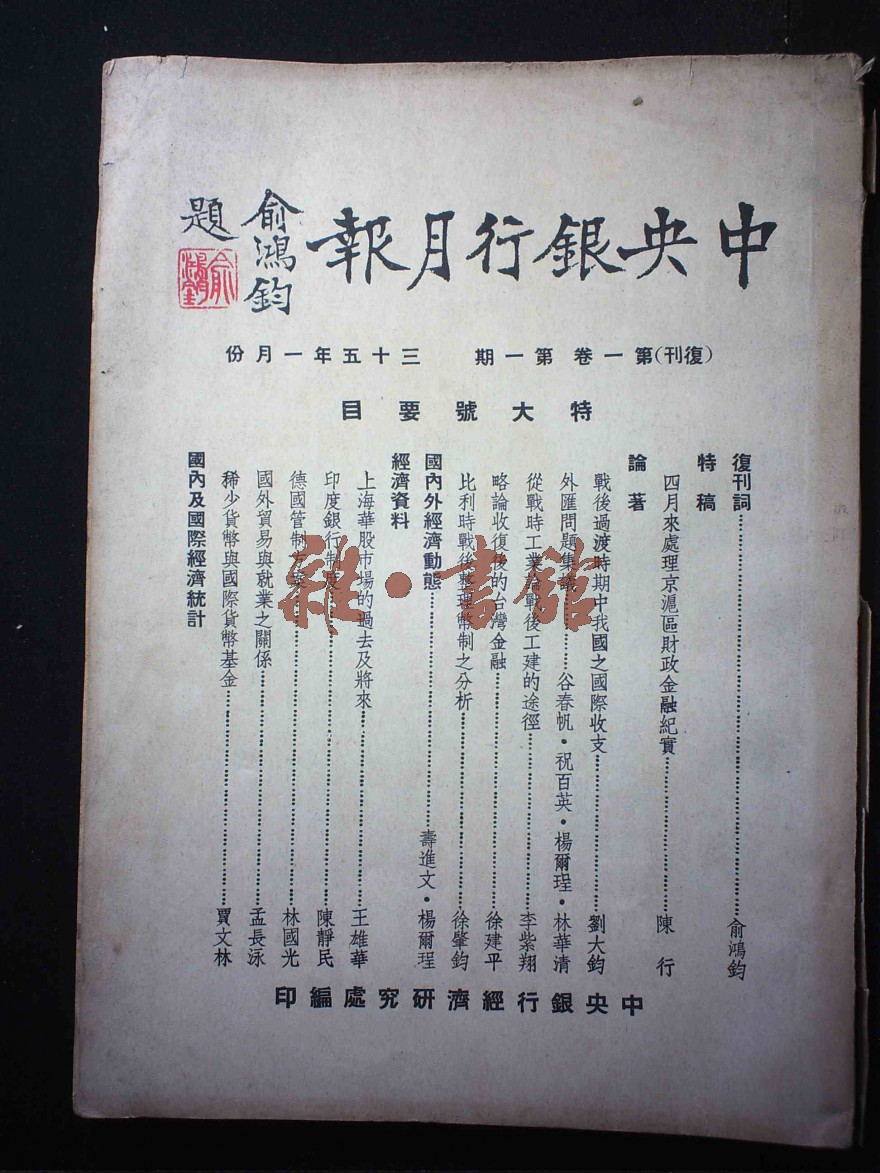 中央銀行月報
俞鴻鈞
題
俞鴻鈞
(復刊)第一卷第一期 三十五年一月份
特大號要目
復刊詞……俞鴻鈞
特稿
四月來處理京滬區財政金融紀實……陳行
論著
戰後過渡時期中我國之國際收支……劉大鈞
外匯問題集議……谷春帆・祝百英・楊爾珵・林華清
從戰時工業論戰後工建的途徑……李紫翔
略論收復後的台灣金融……徐建平
比利時戰後整理幣制之分析……徐肇鈞
國內外經濟動態……壽進文・楊爾珵
經濟資料
上海華股市場的過去及將來……王雄華
印度銀行制度……陳靜民
德國管制方案……林國光
國外貿易與就業之關係……孟長泳
稀少貨幣與國際貨幣基金……賈文林
國內及國際經濟統計
中央銀行經濟研究處編印
雜・書館